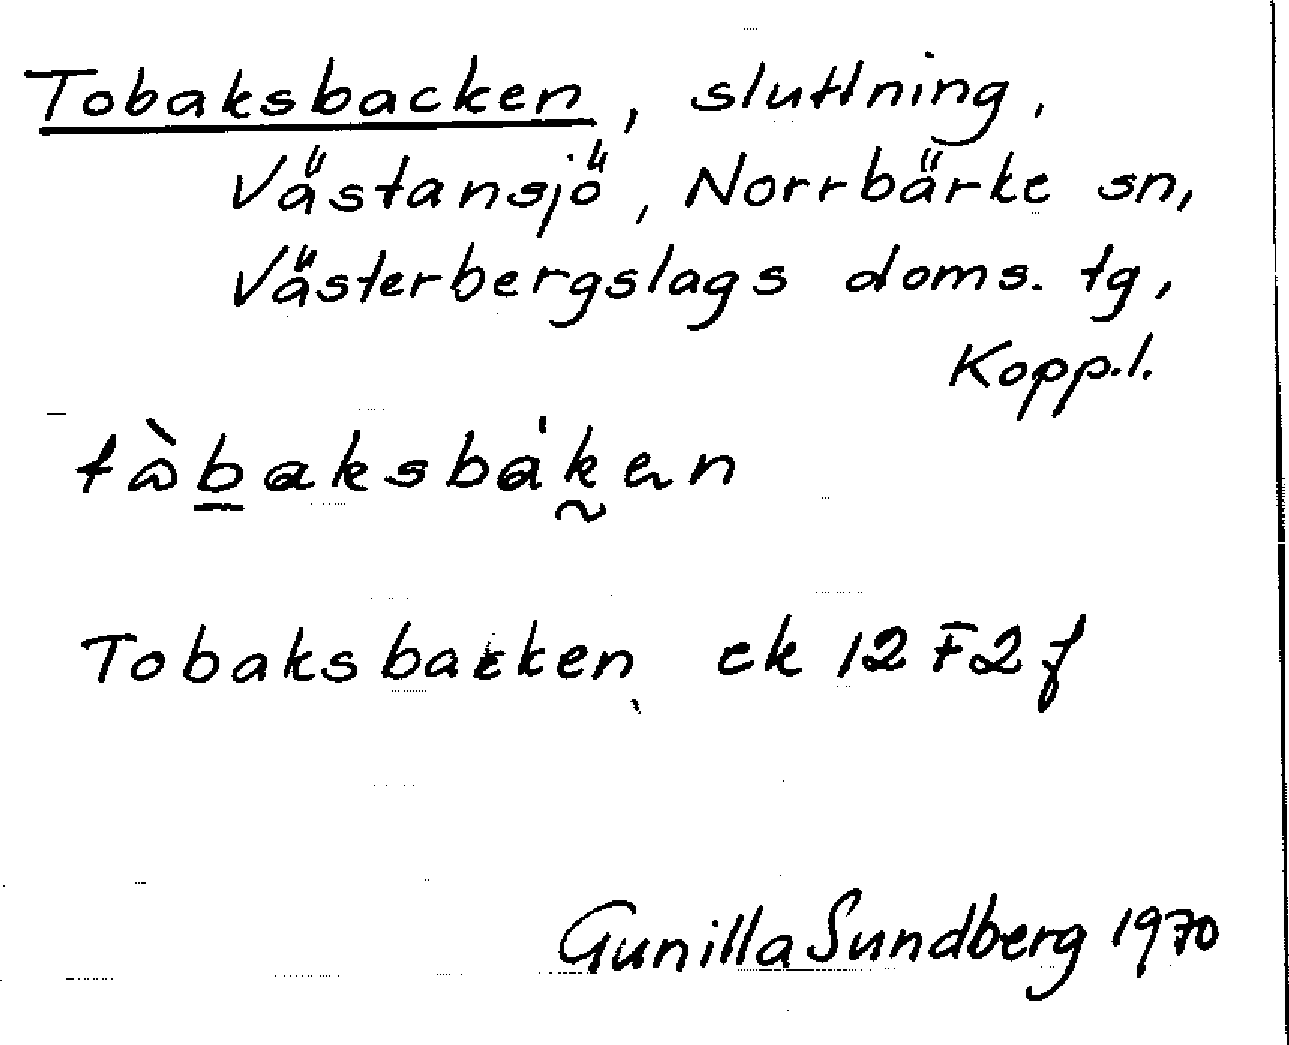 Tobaksbacken, sluttning,
Västansjö, Norrbärke sn,
Västerbergslags doms. tg,
Kopp.l.
tàbaksbákən
Tobaksbacken ek 12 F 2 f
Gunilla Sundberg 1970